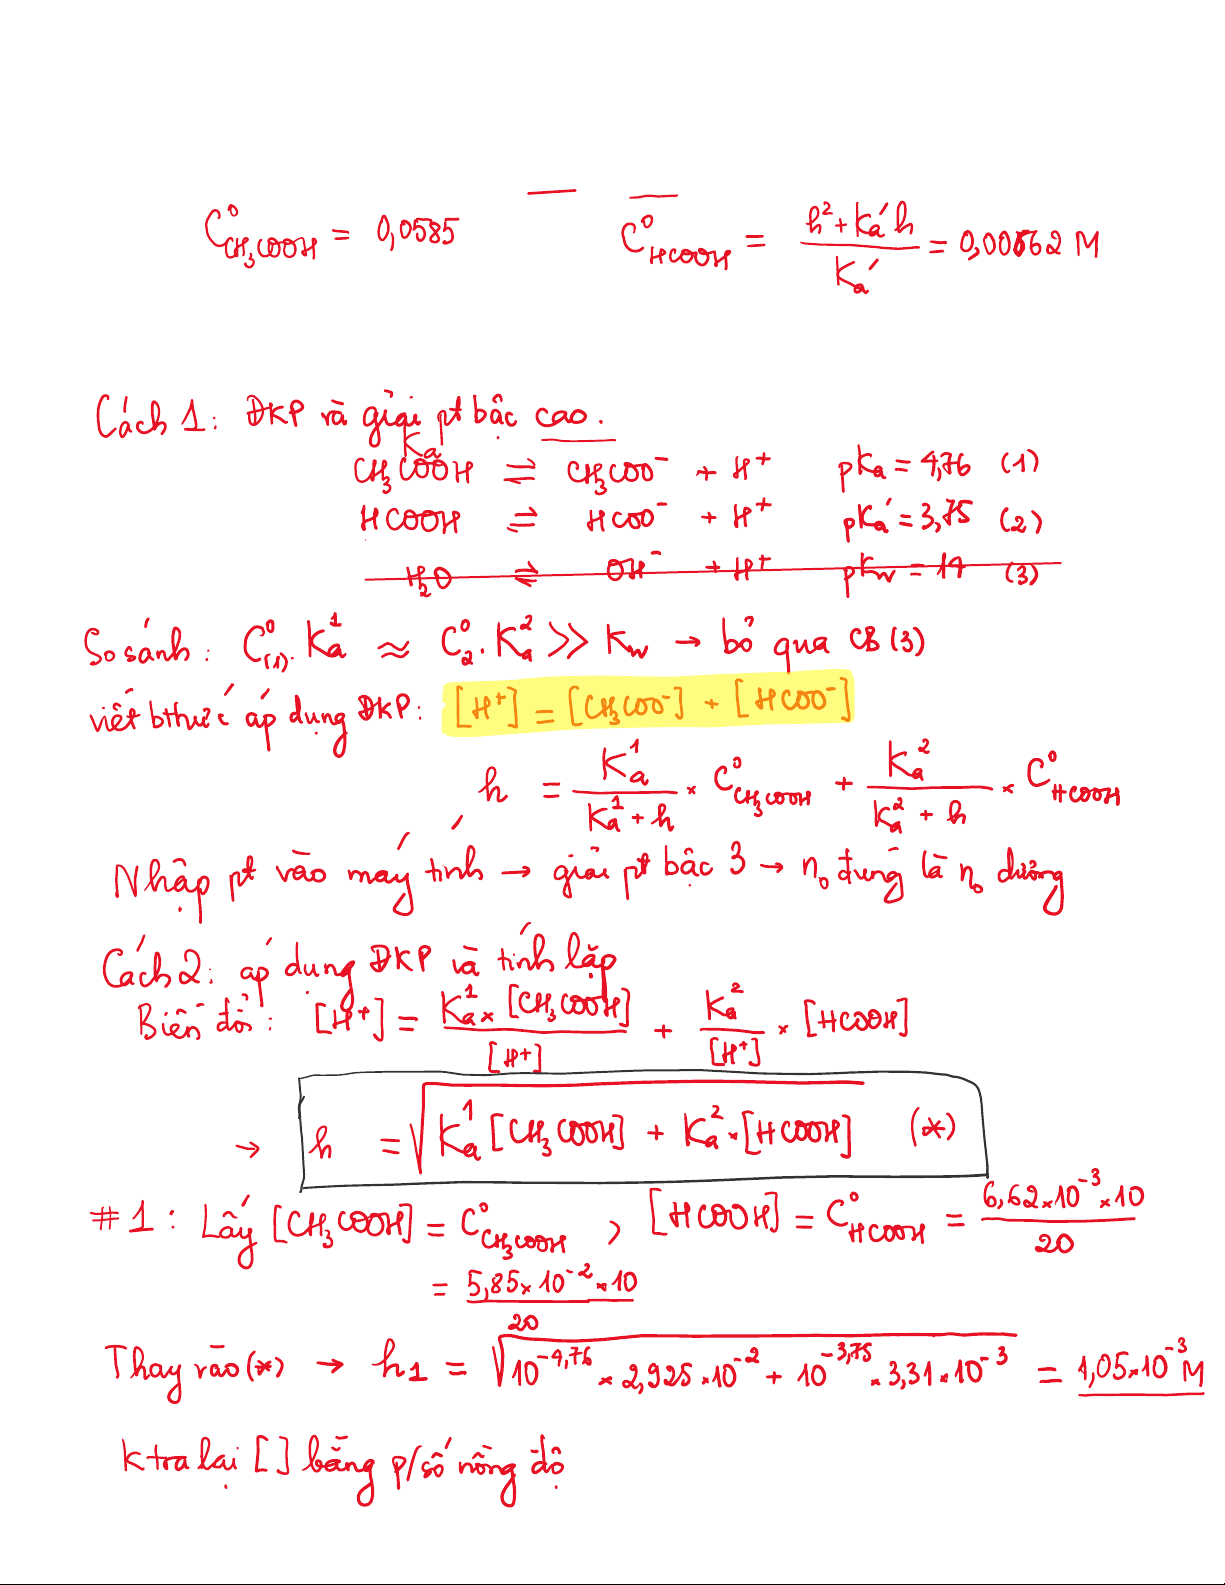 C⁰CH₃COOH = 0,0585    C⁰HCOOH = (h² + Ka'h) / Ka' = 0,00662 M
Cách 1: ĐKP và giải pt bậc cao.
Ka
CH₃COOH ⇌ CH₃COO⁻ + H⁺    pKa = 4,76 (1)
HCOOH ⇌ HCOO⁻ + H⁺    pKa' = 3,75 (2)
H₂O ⇌ OH⁻ + H⁺    pKw = 14 (3)
So sánh: C⁰(1).Ka¹ ≈ C⁰₂.Ka² >> Kw → bỏ qua CB (3)
viết bthức áp dụng ĐKP: [H⁺] = [CH₃COO⁻] + [HCOO⁻]
h = Ka¹ / (Ka¹ + h) × C⁰CH₃COOH + Ka² / (Ka² + h) × C⁰HCOOH
Nhập pt vào máy tính → giải pt bậc 3 → n₀ đúng là n₀ dương
Cách 2: áp dụng ĐKP và tính lặp
Biến đổi: [H⁺] = Ka¹ × [CH₃COOH] / [H⁺] + Ka² / [H⁺] × [HCOOH]
→ h = √(Ka¹ [CH₃COOH] + Ka².[HCOOH]) (*)
#1: Lấy [CH₃COOH] = C⁰CH₃COOH , [HCOOH] = C⁰HCOOH = 6,62×10⁻³×10 / 20
= 5,85×10⁻²×10 / 20
Thay vào (*) → h₁ = √(10⁻⁴,⁷⁶ × 2,925×10⁻² + 10⁻³,⁷⁵ × 3,31×10⁻³) = 1,05×10⁻³ M
Ktra lại [ ] bằng p/số nồng độ